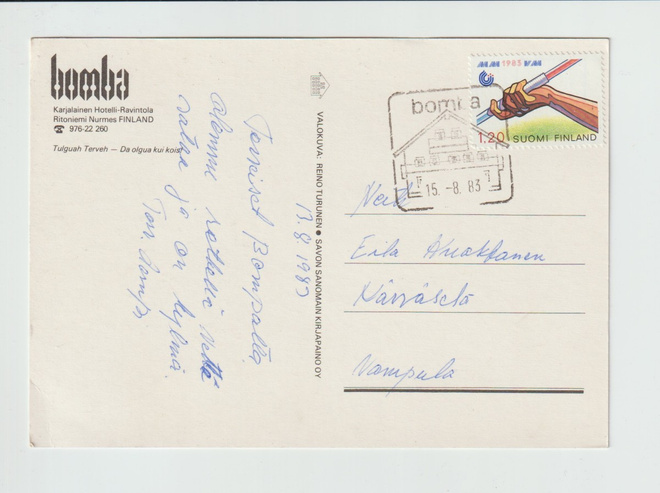 bomba
Karjalainen Hotelli-Ravintola
Ritoniemi Nurmes FINLAND
☎ 976-22 260
Tulguah Terveh — Da olgua kui kois!
13.8.1983
Terveiset Bompalta
olemme retkellä vettä
sataa ja on kylmä.
Terv.
VALOKUVA: REINO TURUNEN ● SAVON SANOMAIN KIRJAPAINO OY
MM 1983 VM
1.20 SUOMI FINLAND
bomba
15.-8.83
Neiti
Eila
Vampula